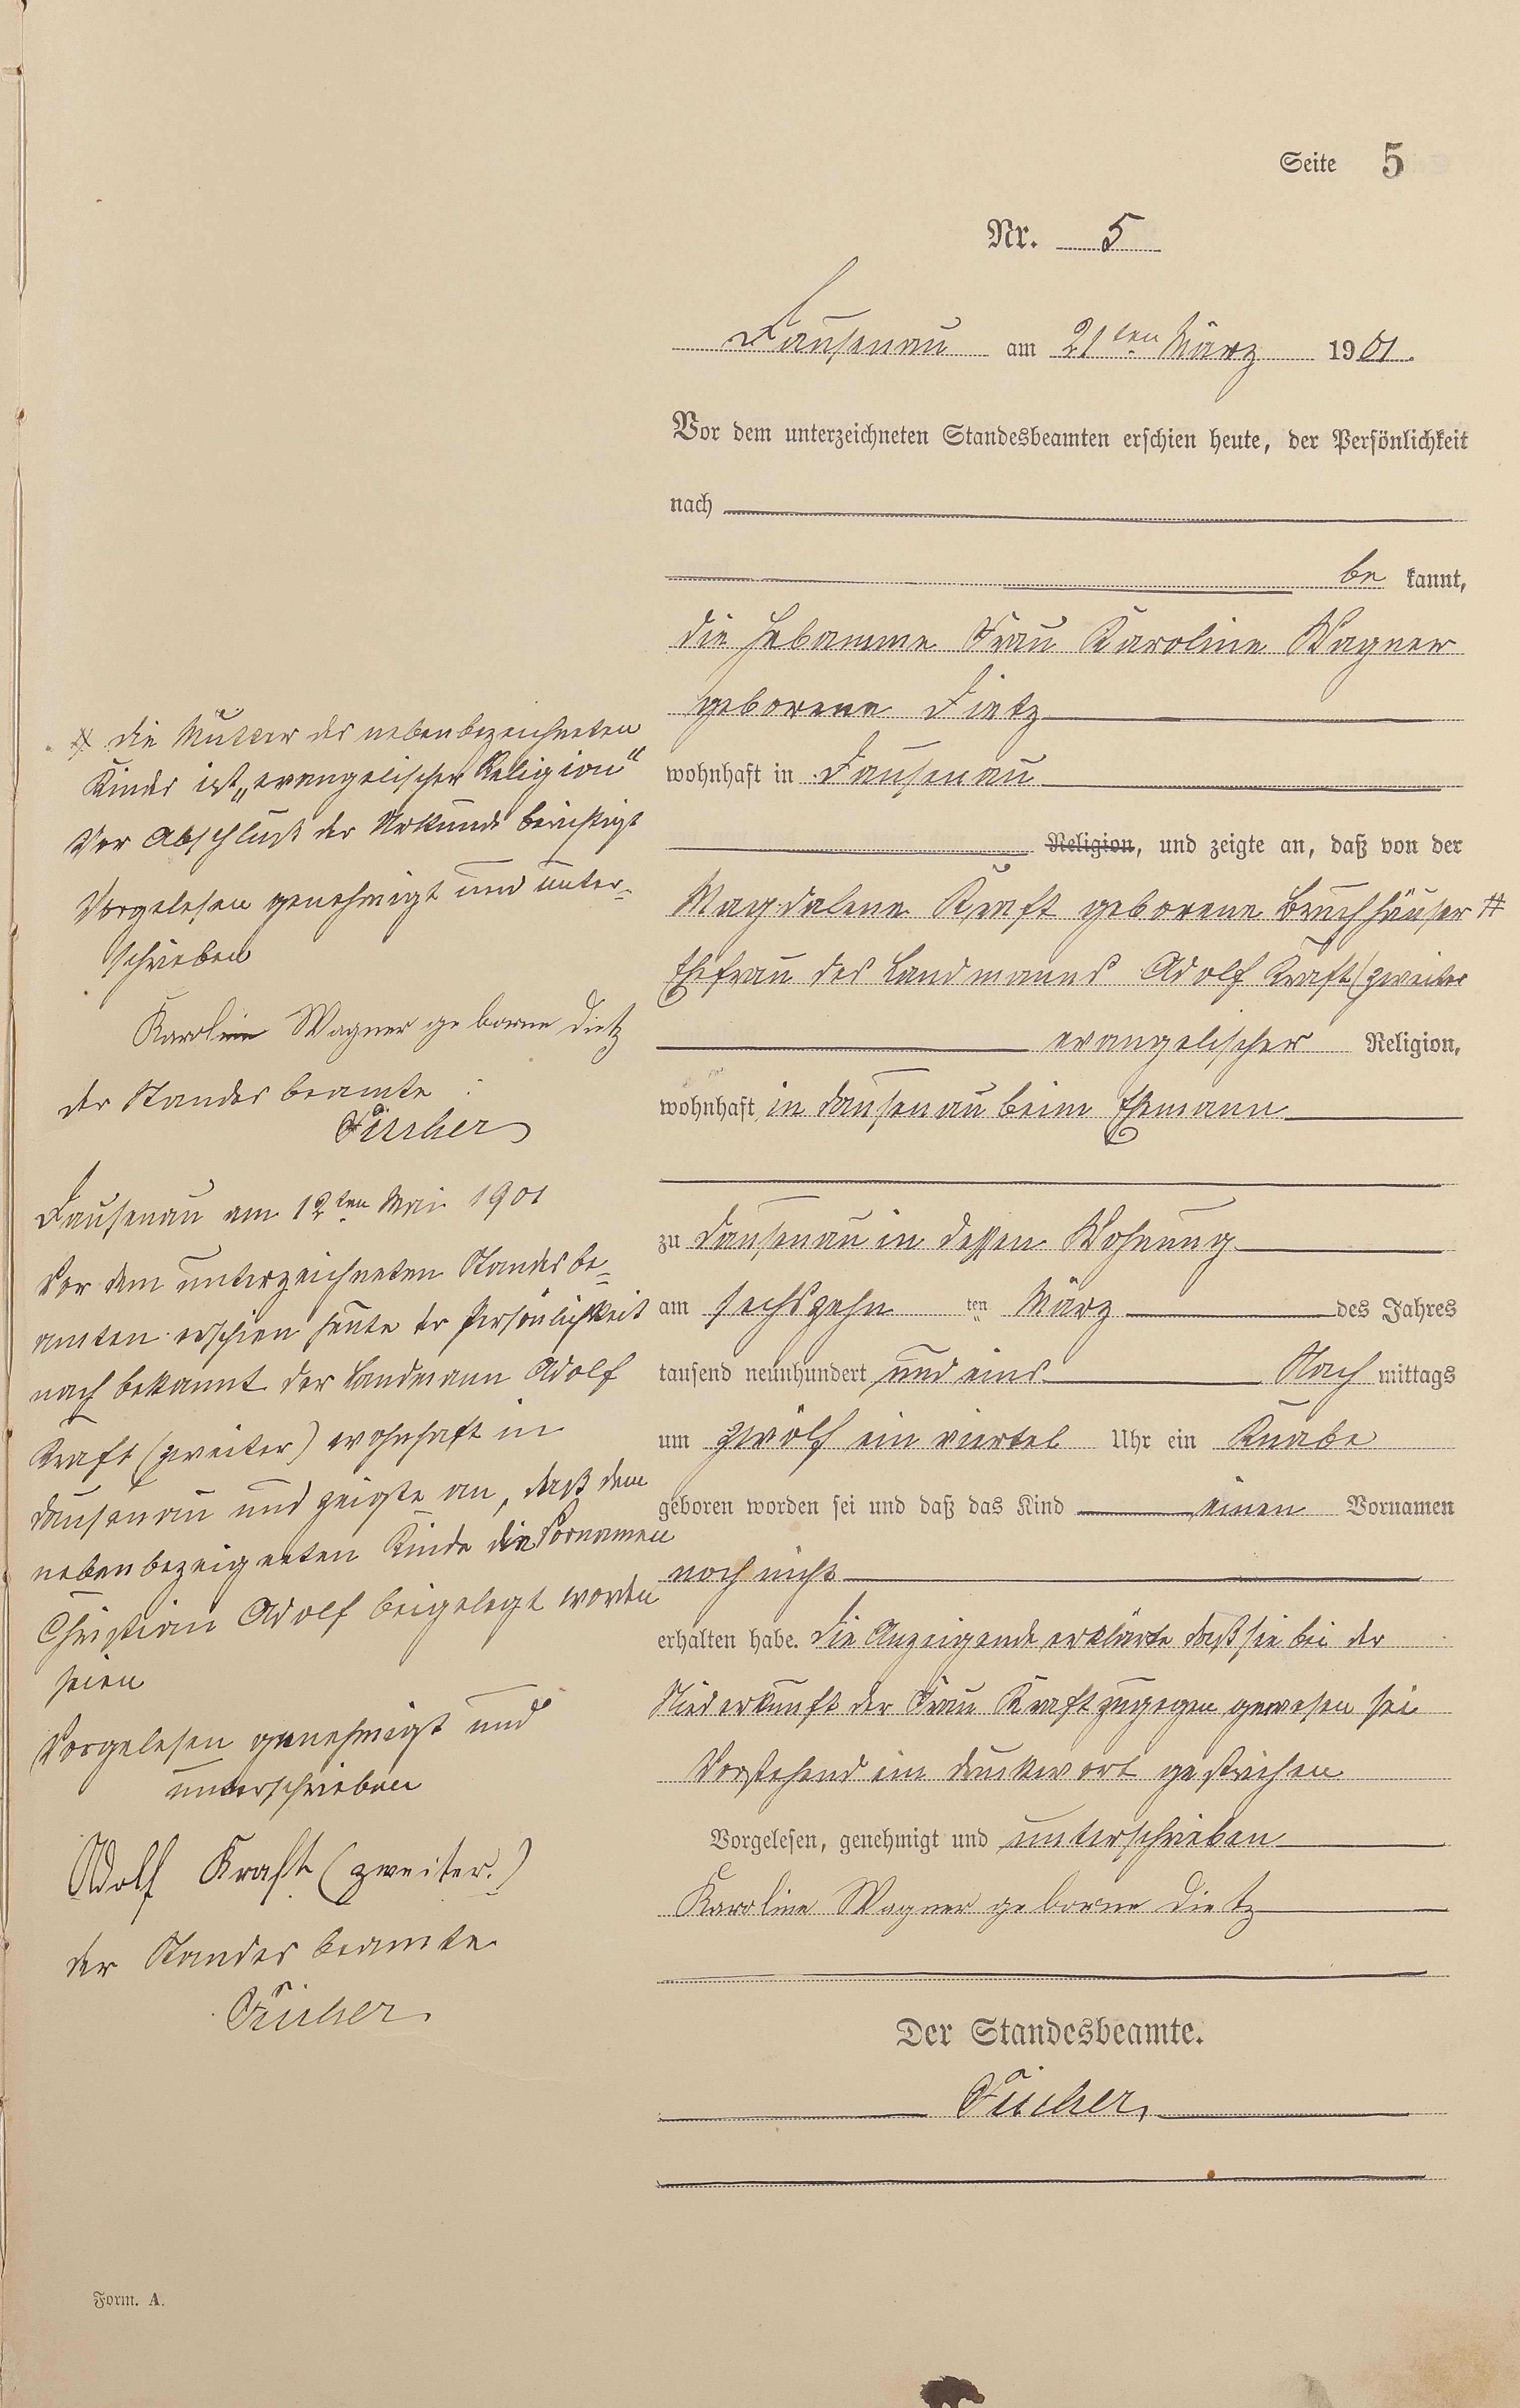 Seite 5
Nr. 5
Dausenau am 21ten März 1901.
Vor dem unterzeichneten Standesbeamten erschien heute, der Persönlichkeit
nach
be kannt,
die Hebamme Frau Karoline Wagner
geborene Dietz
wohnhaft in Dausenau
Religion, und zeigte an, daß von der
Magdalena Kraft geborene Bruchhäuser #
Ehefrau des Landmanns Adolf Kraft (zweiter
evangelischer Religion,
wohnhaft in Dausenau beim Ehemann
zu Dausenau in dessen Wohnung
am sechszehn ten März des Jahres
tausend neunhundert und eins Nach mittags
um zwölf ein viertel Uhr ein Knabe
geboren worden sei und daß das Kind einen Vornamen
noch nicht
erhalten habe. Die Anzeigende erklärte daß sie bei der
Niederkunft der Frau Kraft zugegen gewesen sei
Vorstehend ein Druckwort gestrichen
Vorgelesen, genehmigt und unterschrieben
Karoline Wagner geborne Dietz
Der Standesbeamte.
# die Mutter des nebenbezeichneten
Kindes ist „evangelischer Religion“
Vor Abschluß der Urkunde berichtigt
Vorgelesen genehmigt und unter-
schrieben
Karoline Wagner geborne Dietz
der Standesbeamte
Dausenau am 12ten Mai 1901
Vor dem unterzeichneten Standesbe-
amten erschien heute der Persönlichkeit
nach bekannt der Landmann Adolf
Kraft (zweiter) wohnhaft in
Dausenau und zeigte an, daß dem
nebenbezeigneten Kinde die Vornamen
Christian Adolf beigelegt worden
seien
Vorgelesen genehmigt und
unterschrieben
Adolf Kraft (zweiter.)
der Standesbeamte
Form. A.